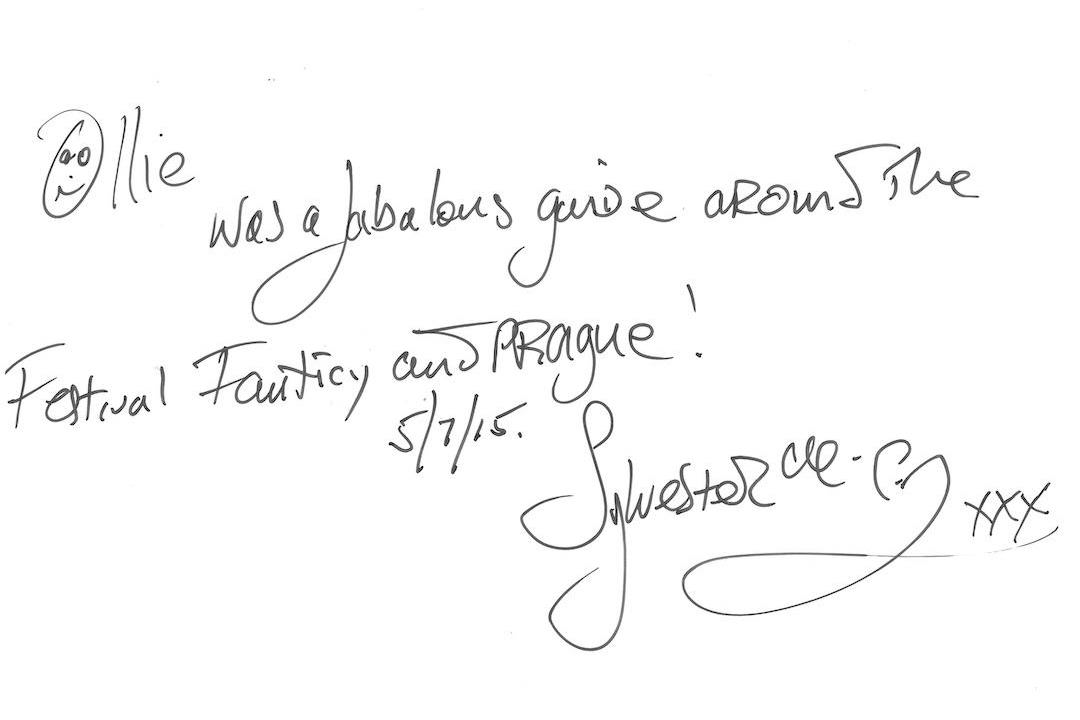 Ollie
was a fabalous guide around the
Festival Fanticy and PRague!
5/7/15.
Sylvester Mc.Coy xxx